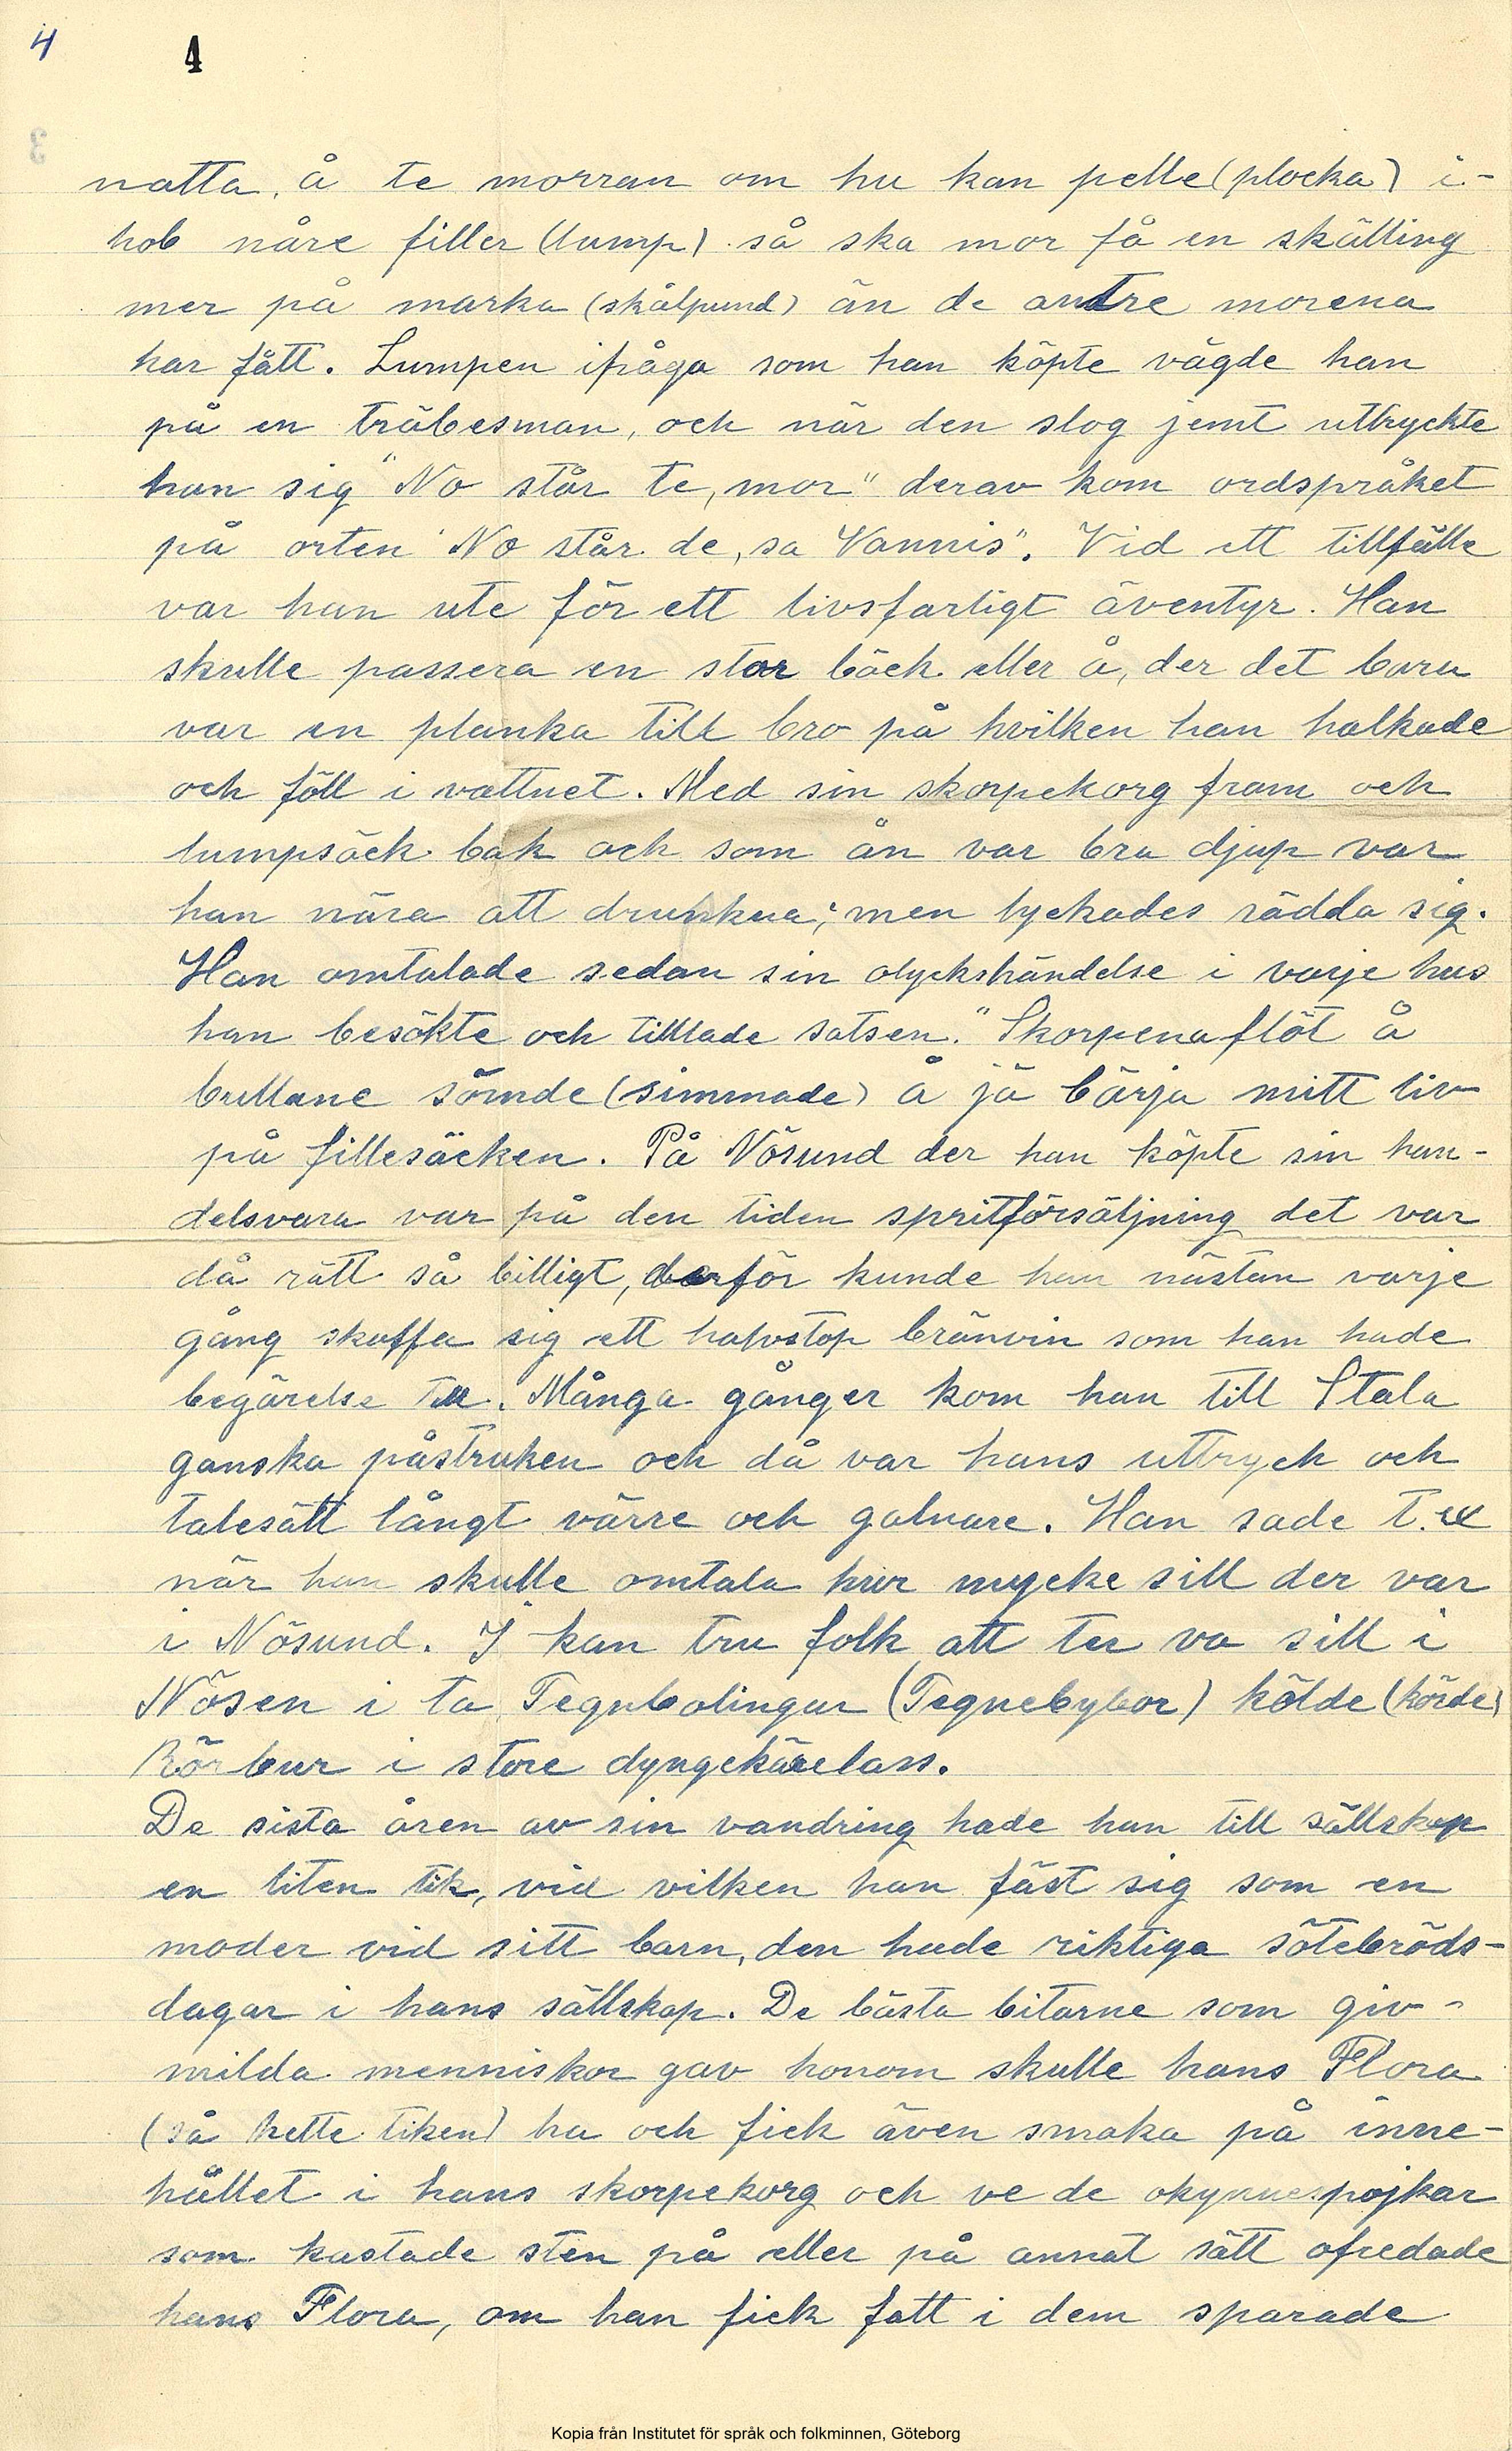 4
4
3
natta, å te morran om hu kan pelle (plocka) i-
hob nåre filler (lump) så ska mor få en skälling
mer på marka (skålpund) än de andre morena
har fått. Lumpen ifråga som han köpte vägde han
på en träbesman, och när den slog jemt uttryckte
han sig "No står te, mor" derav kom ordspråket
på orten "No står de, sa Vannis". Vid ett tillfälle
var han ute för ett livsfarligt äventyr. Han
skulle passera en stor bäck eller å, der det bara
var en planka till bro på hvilken han halkade
och föll i vattnet. Med sin skorpekorg fram och
lumpsäck bak och som ån var bra djup var
han nära att drunkna; men lyckades rädda sig.
Han omtalade sedan sin olyckshändelse i varje hus
han besökte och tilllade satsen. "Skorpena flöt å
bullane sömde (simmade) å jä bärja mitt liv
på fillesäcken. På Nösund der han köpte sin han-
delsvara var på den tiden spritförsäljning det var
då rätt så billigt, derför kunde han nästan varje
gång skaffa sig ett halvstop bränvin som han hade
begärelse till. Många gånger kom han till Stala
ganska påstruken och då var hans uttryck och
talesätt långt värre och galnare. Han sade t.ex
när han skulle omtala hur mycke sill der var
i Nösund. I kan tru folk att ter va sill i
Nösen i ta Tegnbolingar (Tegnebybor) kölde (körde)
Rörbur i store dyngekärelass.
De sista åren av sin vandring hade han till sällskap
en liten tik, vid vilken han fäst sig som en
moder vid sitt barn, den hade riktiga sötebröds-
dagar i hans sällskap. De bästa bitarne som giv-
milda menniskor gav honom skulle hans Flora
(så hette tiken) ha och fick även smaka på inne-
hållet i hans skorpekorg och ve de okynnespojkar
som kastade sten på eller på annat sätt ofredade
hans Flora, om han fick fatt i dem sparade
Kopia från Institutet för språk och folkminnen, Göteborg